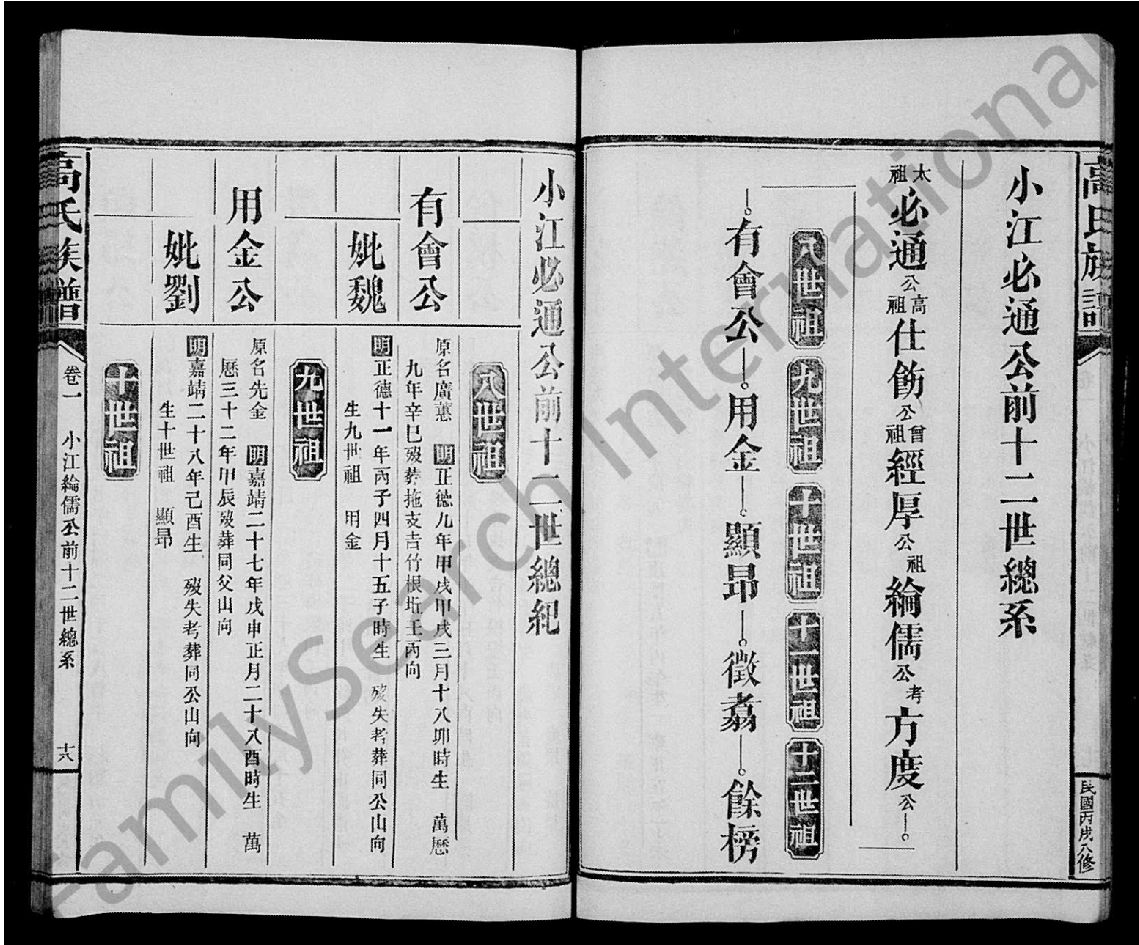 高氏族譜
民國丙戌八修
小江必通公前十二世總系
太祖必通公高祖仕飭公曾祖經厚公祖綸儒公考方度公
八世祖 九世祖 十世祖 十一世祖 十二世祖
有會公 用金 顯昂 徵翥 餘榜
小江必通公前十二世總紀
八世祖
有會公 原名廣蕙 明正德九年甲戌甲戌三月十八卯時生 萬曆
九年辛巳歿葬拖支吉竹根坵壬丙向
妣魏 明正德十一年丙子四月十五子時生 歿失考葬同公山向
生九世祖 用金
九世祖
用金公 原名先金 明嘉靖二十七年戊申正月二十八酉時生 萬
曆三十二年甲辰歿葬同父山向
妣劉 明嘉靖二十八年己酉生 歿失考葬同公山向
生十世祖 顯昂
十世祖
高氏族譜 卷一 小江綸儒公前十二世總系 十八
FamilySearch International